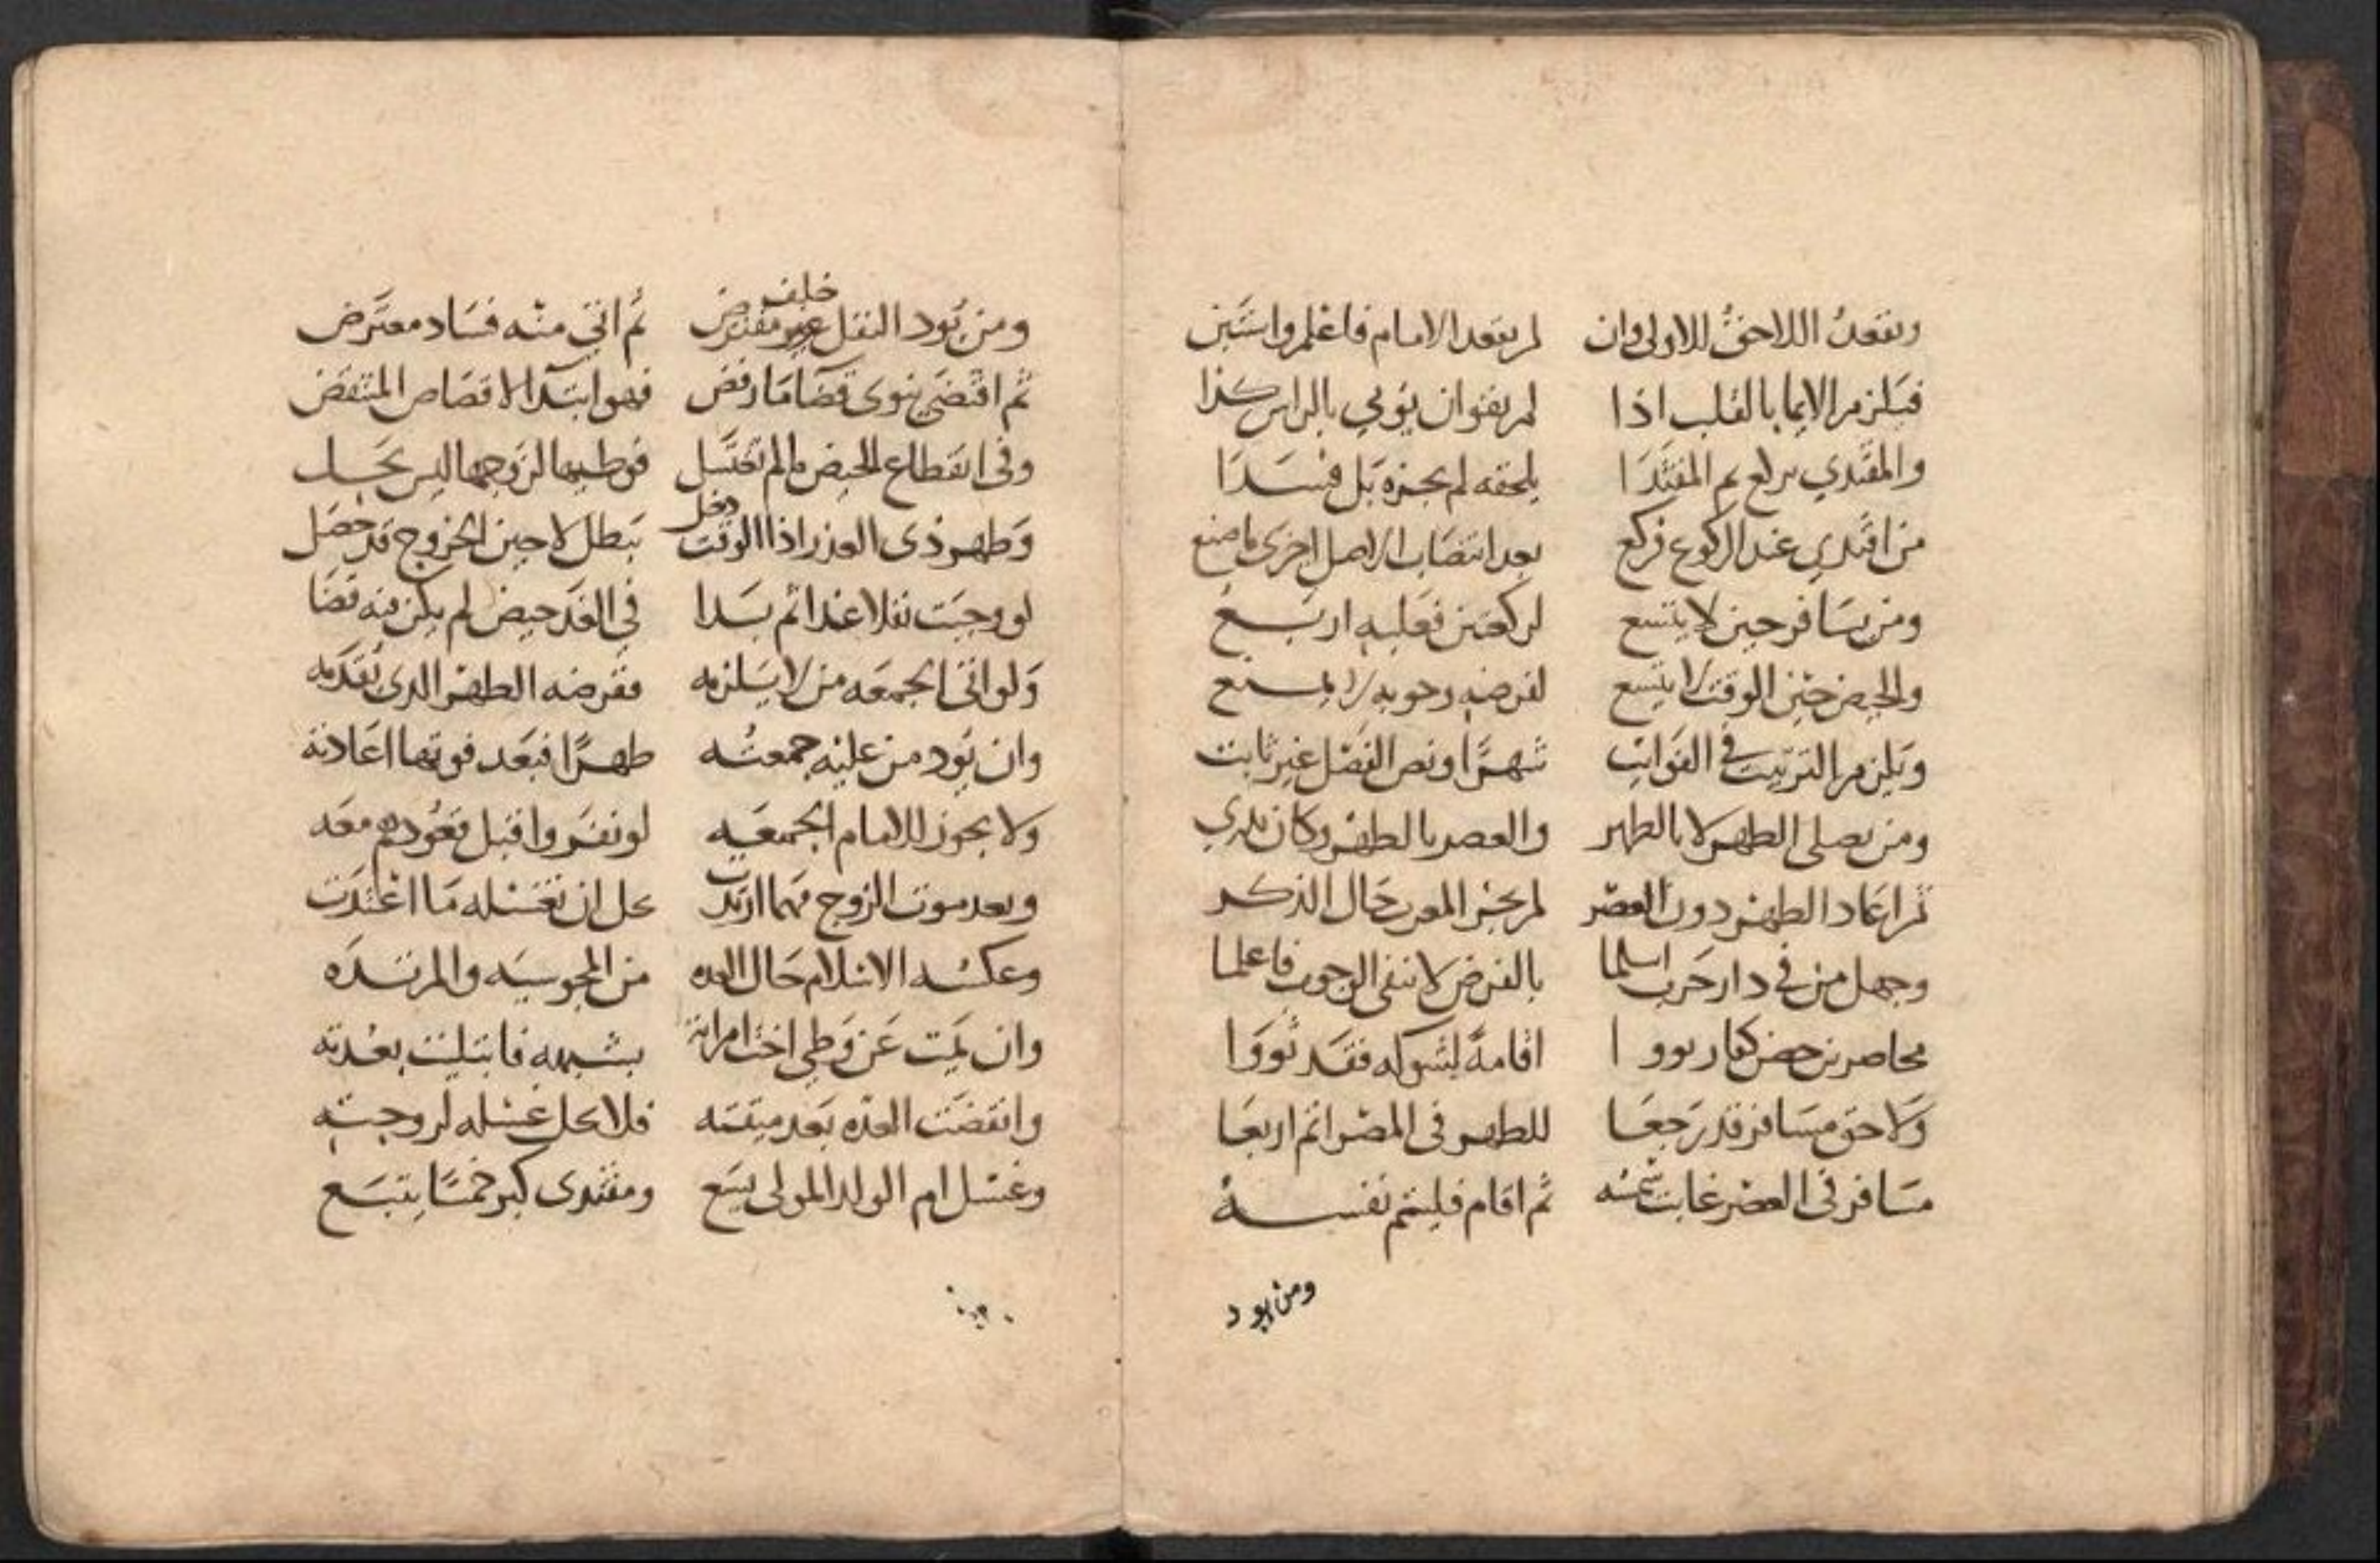 ويقعد اللاحق للاولى وان لم يقعد الامام فاعلم واستبن
فيلزم الايما بالقلب اذا لم يقو ان يومي بالراس كذا
والمقتدي المقتدا يلحقه لم يجزه بل فسدا
من اقتدي عند الركوع فركع بعد انتصاب الاصل اجزى ما صنع
ومن يسافر حين لا يتسع لركعتين فعليه اربع
والحيض حين الوقت لا يتسع لفرضه وجوبه لا يمتنع
ويلزم الترتيب في الفوايت شهرا ونص الفضل غير ثابت
ومن يصلى الظهر لا بالطهر والعصر بالطهر وكان يدري
ثم اعاد الظهر دون العصر لم يجز المغرب حال الذكر
وجهل من في دار حرب اسلما بالفرض لا ننفى الوجوب فاعلما
محاصرين حصن كفار نووا اقامة لشوكه فقد ثووا
ولاحق مسافر قد رجعا للطهر فى المصر اتم اربعا
مسافر فى العصر غابت شمسه ثم اقام فليتم نفسه
ومن يود
ومن يود النفل خلف مفترض ثم اتى منه فساد معترض
ثم اقتضي ينوى قضا ما رفض فهو ابتدا لا قصاص المنتقض
وفى انقطاع الحيض ما لم تغتسل فوطيها لزوجها ليس يحل
وطهر ذى العذر اذا الوقت دخل يبطل لا حين الخروج قد حصل
لو وجبت نفلا غدا ثم بدا في الغد حيض لم يكن فيه قضا
ولو اتى الجمعه من لا يلزمه ففرضه الظهر الذى يقدمه
وان يود من عليه جمعته ظهرا فبعد فوتها اعادته
ولا يجوز للامام الجمعه لو نفروا قبل قعودهم معه
وبعد موت الزوج مهما ارتدت حل ان تغسله ما اعتدت
وعكسه الاسلام حال العده من المجوسيه والمرتده
وان يمت عن وطي اخت امراته بشبهه فابتليت بعدته
وانقضت العده بعد ميتته فلا يحل غسله لزوجته
وغسل ام الولد المولى يسع ومقتدى كبر خمسا يتبع